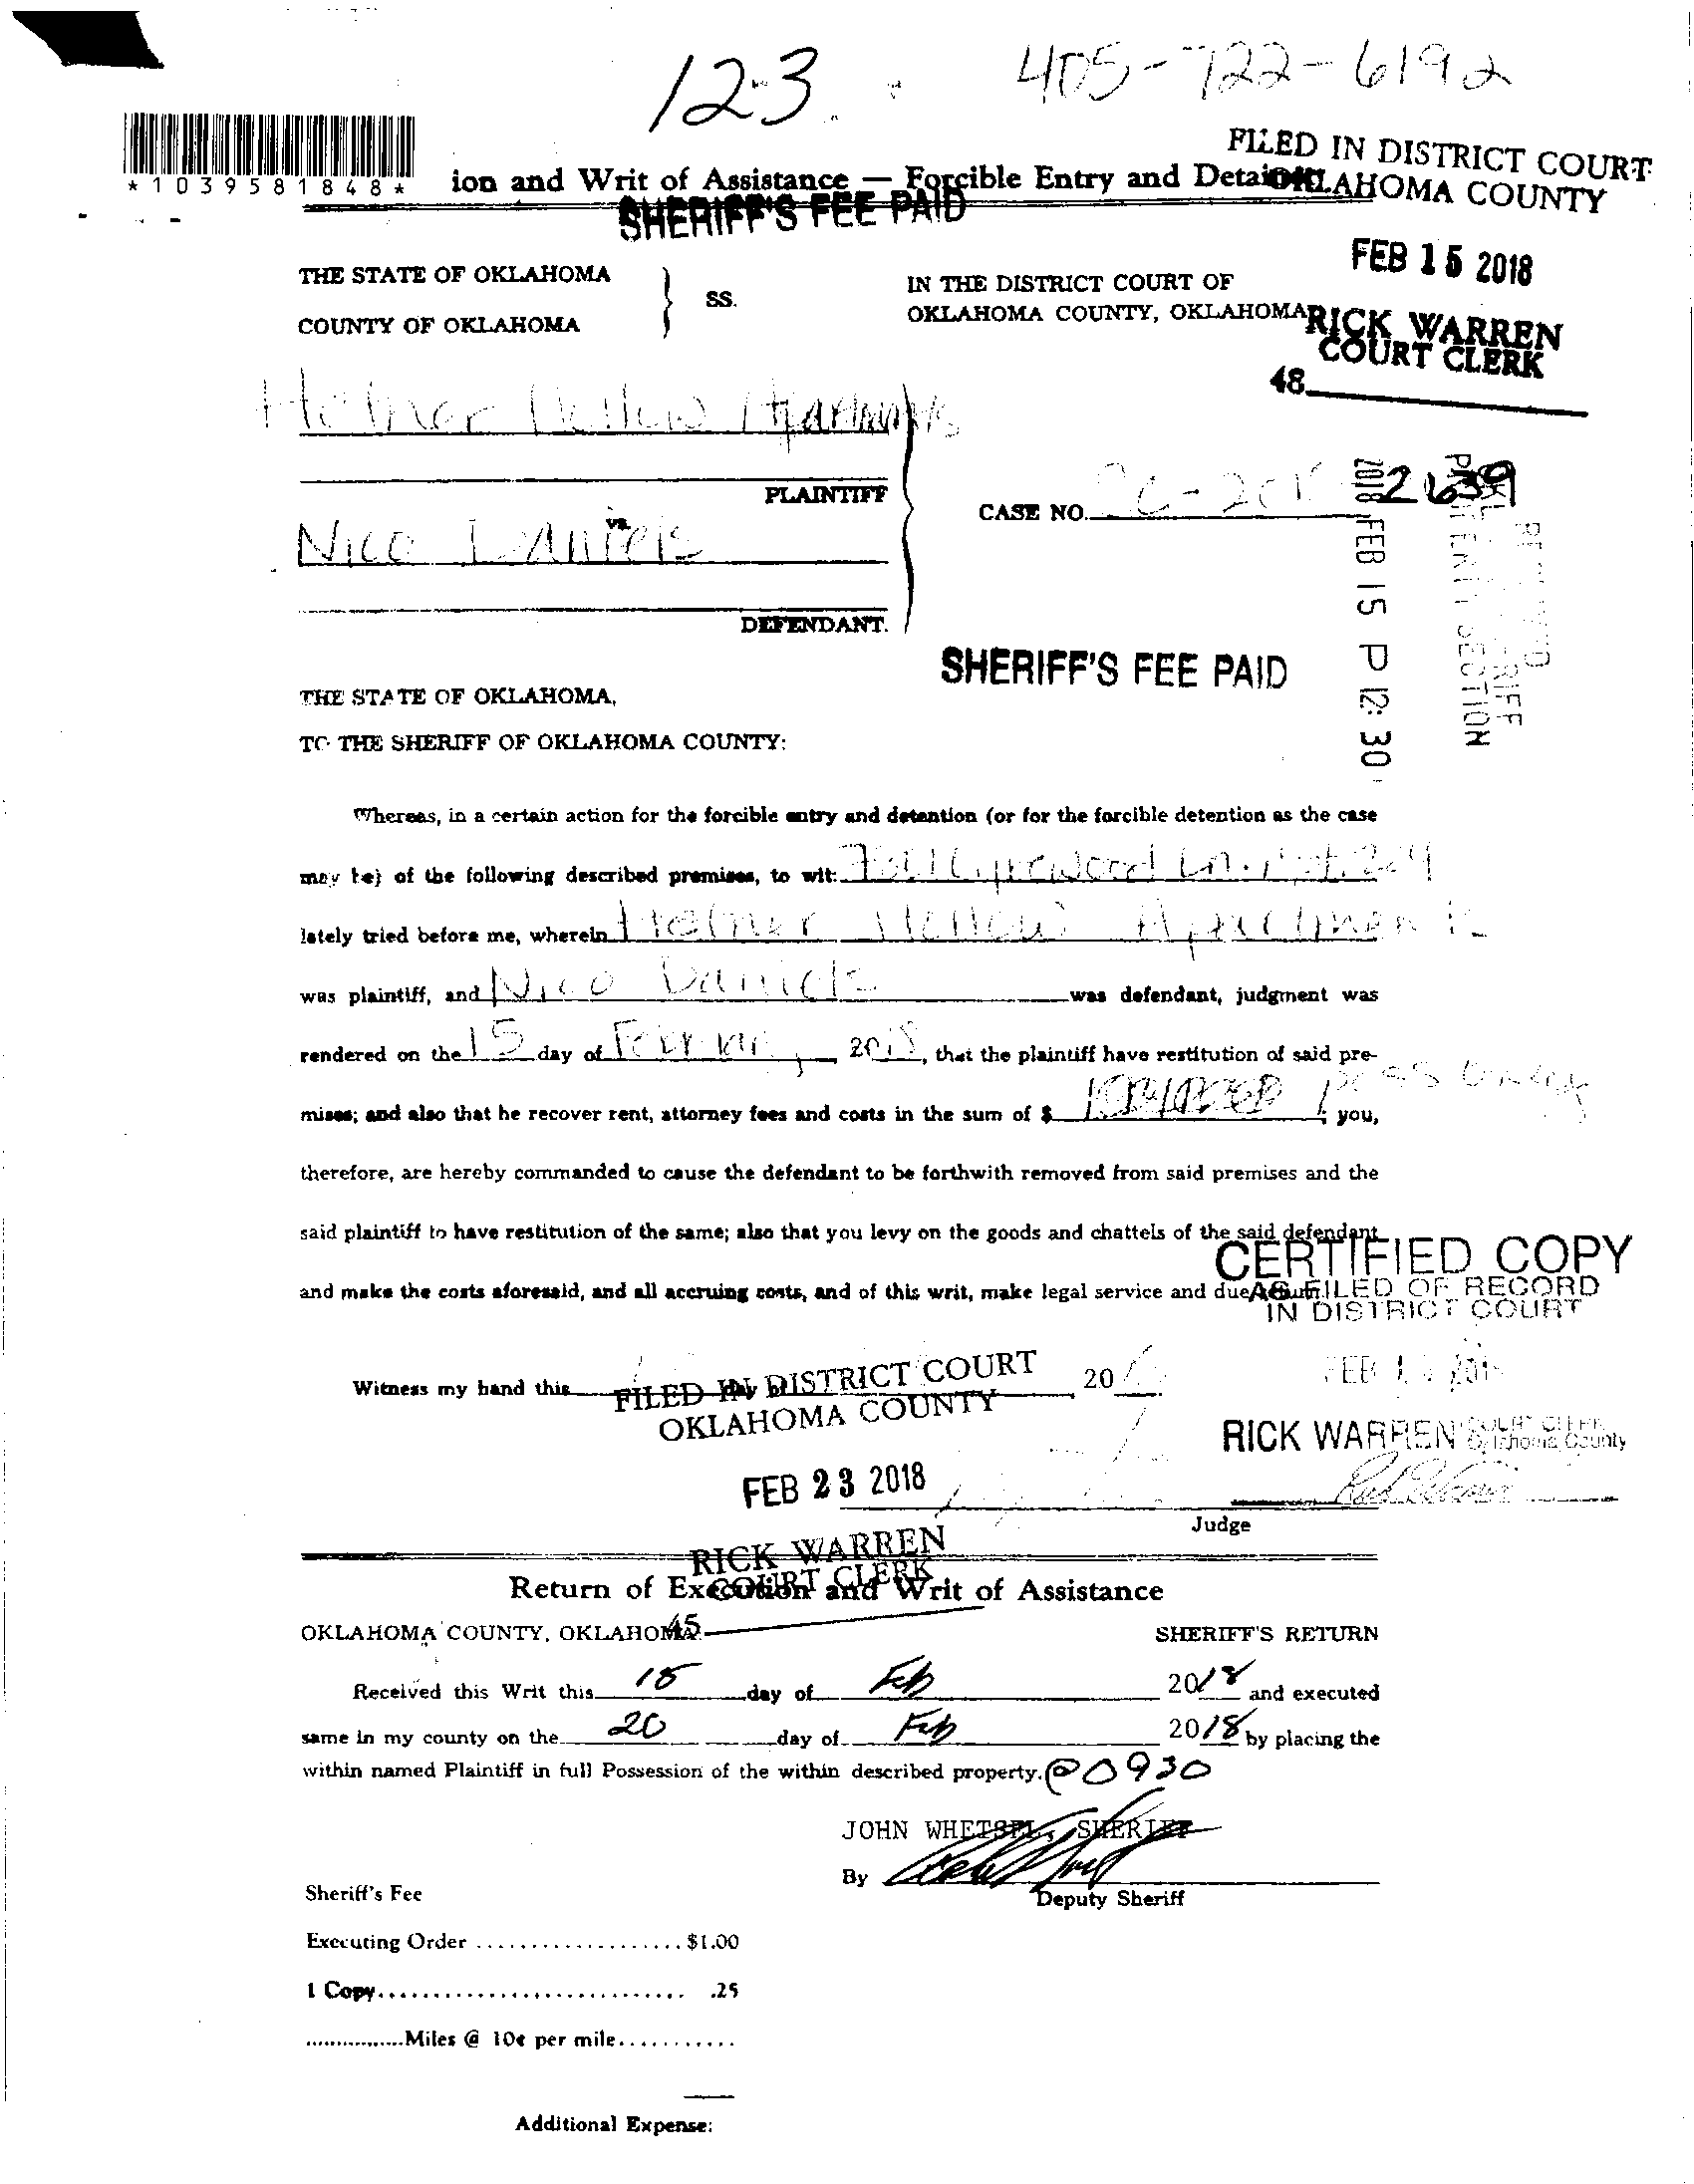 123
405-722-6192
*1039581848*
ion and Writ of Assistance — Forcible Entry and Detai
FILED IN DISTRICT COURT
OKLAHOMA COUNTY
SHERIFF'S FEE PAID
FEB 15 2018
RICK WARREN
COURT CLERK
48
THE STATE OF OKLAHOMA
COUNTY OF OKLAHOMA
SS.
IN THE DISTRICT COURT OF
OKLAHOMA COUNTY, OKLAHOMA
PLAINTIFF
vs.
Nico Daniels
DEFENDANT.
CASE NO. 2639
2018 FEB 15 P 12:30
SHERIFF'S FEE PAID
THE STATE OF OKLAHOMA,
TO THE SHERIFF OF OKLAHOMA COUNTY:
Whereas, in a certain action for the forcible entry and detention (or for the forcible detention as the case
may be) of the following described premises, to wit:
lately tried before me, wherein
was plaintiff, and Nico Daniels was defendant, judgment was
rendered on the 15 day of February, 2018, that the plaintiff have restitution of said pre-
mises; and also that he recover rent, attorney fees and costs in the sum of $ you,
therefore, are hereby commanded to cause the defendant to be forthwith removed from said premises and the
said plaintiff to have restitution of the same; also that you levy on the goods and chattels of the said defendant
and make the costs aforesaid, and all accruing costs, and of this writ, make legal service and due
CERTIFIED COPY
AS FILED OF RECORD
IN DISTRICT COURT
Witness my hand this day of 20
FILED IN DISTRICT COURT
OKLAHOMA COUNTY
FEB 23 2018
RICK WARREN
COURT CLERK
45
RICK WARREN COURT CLERK
Oklahoma County
Judge
Return of Execution and Writ of Assistance
OKLAHOMA COUNTY, OKLAHOMA.
SHERIFF'S RETURN
Received this Writ this 15 day of Feb 2018 and executed
same in my county on the 20 day of Feb 2018 by placing the
within named Plaintiff in full Possession of the within described property. @ 0930
JOHN WHETSEL, SHERIFF
By
Deputy Sheriff
Sheriff's Fee
Executing Order .................... $1.00
1 Copy............................ .25
................Miles @ 10¢ per mile............
Additional Expense: